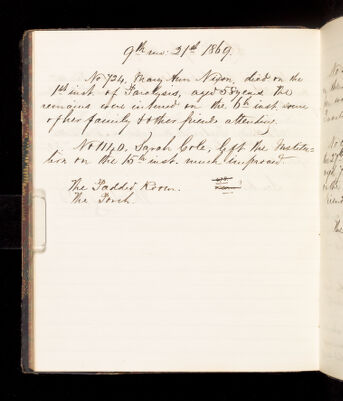 9th mo. 21st 1869.
No 724, Mary Ann Nixon, died on the
1st inst. of Paralysis, aged 58 years the
remains were interred on the 6th inst. some
of her family & other friends attending.
No 1140. Sarah Cole, left the Institu-
tion on the 15th inst. much improved.
The Padded Room.
The Porch.